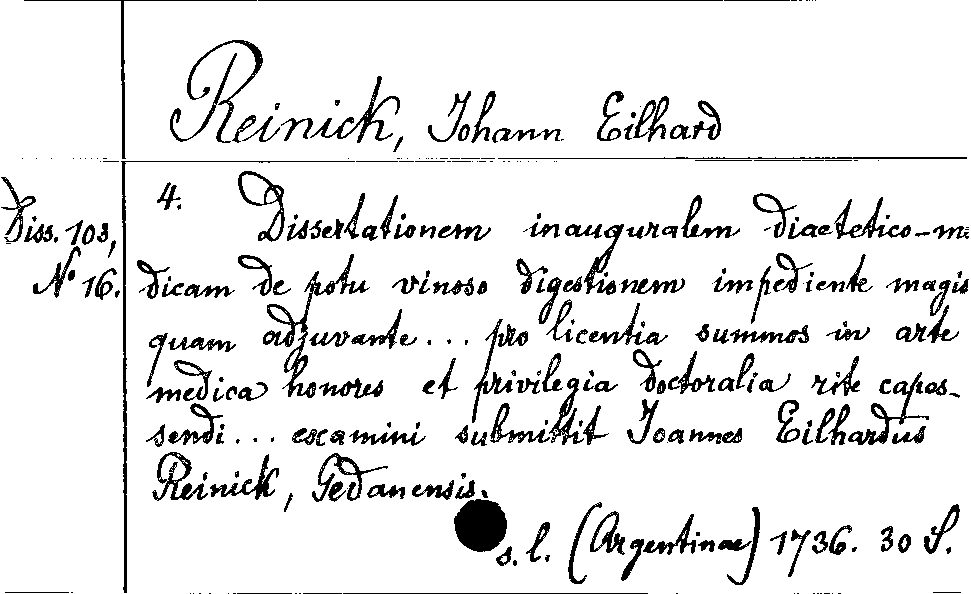 Reinick, Johann Eilhard
Diss. 103,
No 16.
4. Dissertationem inauguralem diaetetico-me
dicam de potu vinoso digestionem impediente magis
quam adjuvante... pro licentia summos in arte
medica honores et privilegia doctoralia rite capes-
sendi... examini submittit Joannes Eilhardus
Reinick, Gedanensis.
s. l. (Argentinae) 1736. 30 S.